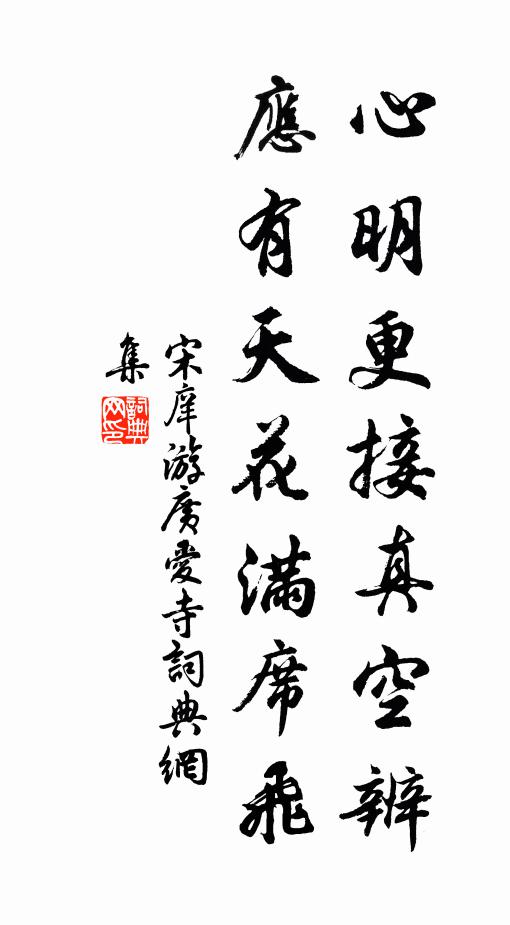 心明更接真空辨
應有天花滿席飛
宋庠游廣愛寺詞典網
集
詞典網印